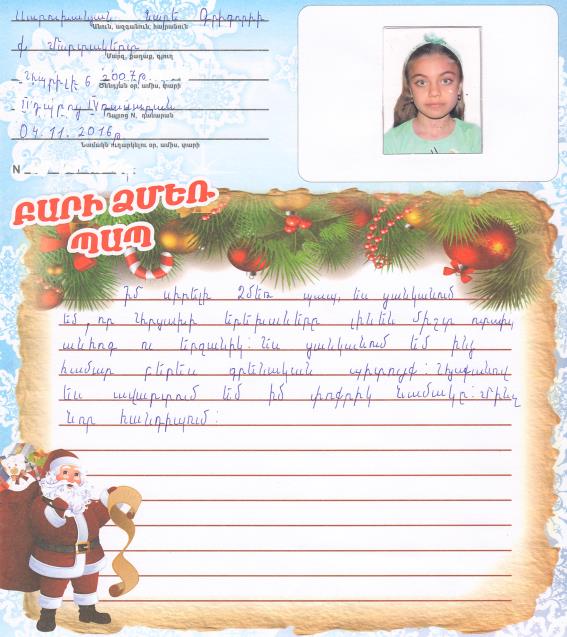 Սարուխանյան Նարե Գրիգորիի
Անուն, ազգանուն, հայրանուն
ք. Մարտակերտ
Մարզ, քաղաք, գյուղ
Ապրիլի 6 2007թ.
Ծննդյան օր, ամիս, տարի
II դպրոց IV դասարան
Դպրոց N, դասարան
04.11.2016թ
Նամակն ուղարկելու օր, ամիս, տարի
N
ԲԱՐԻ ՁՄԵՌ
ՊԱՊ
Իմ սիրելի Ձմեռ պապ, ես ցանկանում
եմ, որ Արցախի երեխաները լինեն միշտ ուրախ,
անհոգ ու երջանիկ: Ես ցանկանում եմ ինձ
համար բերես գրենական պիտույք: Այսքանով
ես ավարտում եմ իմ փոքրիկ նամակը: Մինչ
նոր հանդիպում: